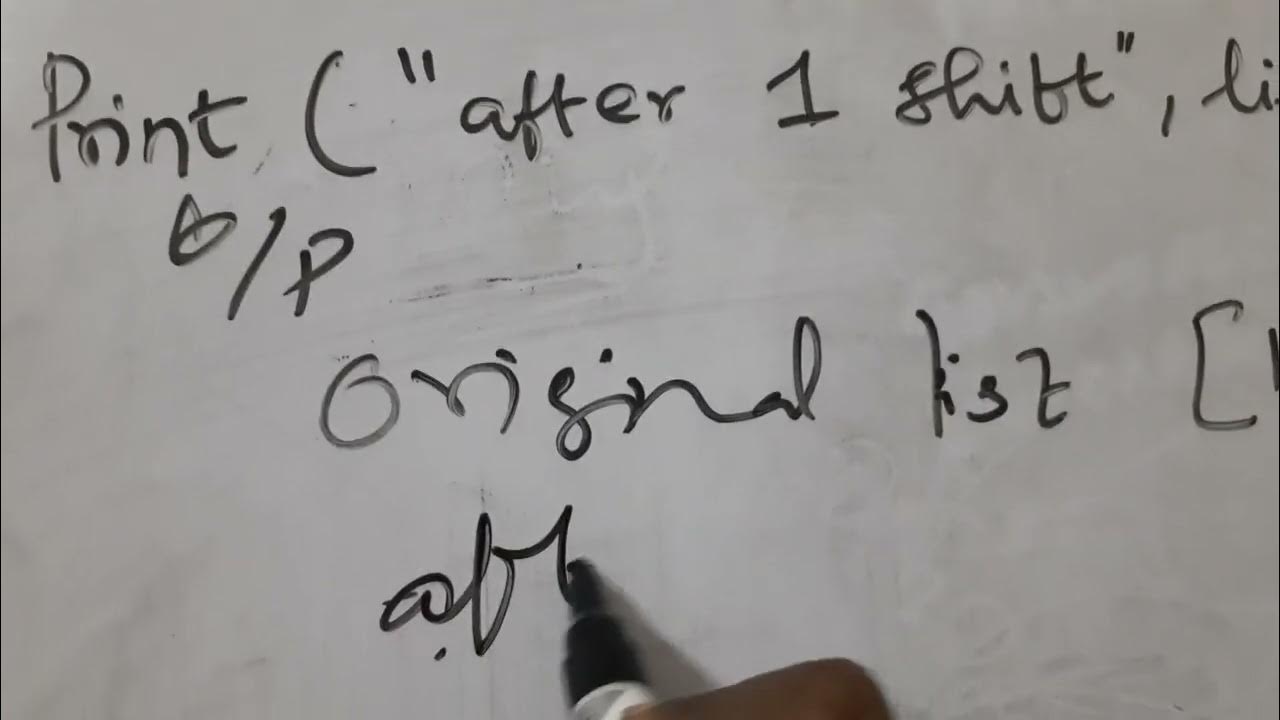 Print ("after 1 shift", li
O/P
Original list [
aft